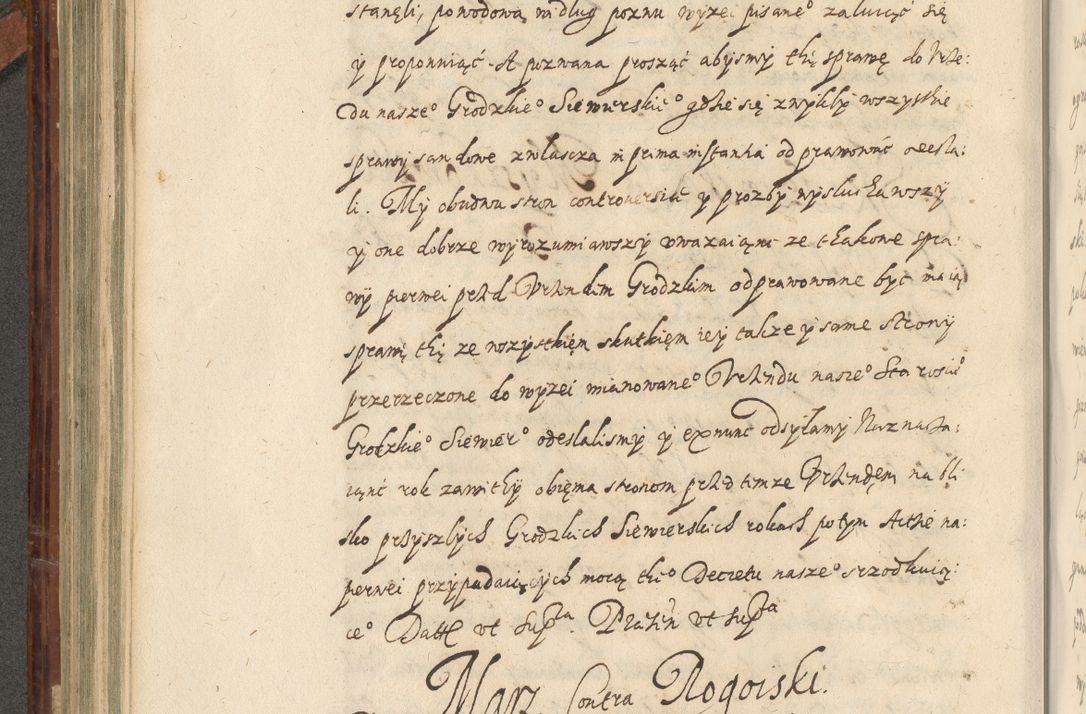 stanęli, powodowa wedlug poznu wyzei pisane° załuiąć się
y proponuiąć. A pozwana prosząć abysmy thę sprawę do Vrze:
du nasze° Grodzkie° Siewierskie° gdzie się zwykłÿ wszystkie
sprawy sandowe zwłascza in prima instantia odprawować odesła:
li. My obudwu stron controuersiÿ y prozby wysłuchawszy
y one dobrze wyrozumiawszy vwazaiąnc ze thakowe spra:
wy pierwei przed Vrzendem Grodzkim odprawowane być maią
sprawę thę ze wszystkiem skutkiem iey takze y same strony
przerzeczone do wyzei mianowane° Vrzendu nasze° Starosci°
Grodzkie° Siewier° odeslalismy y ex nunc odsyłamy Naznacza:
iąnć rok zawithy obiema stronom przed temze Vrzendem na bli
sko przyszłych Grodzkich Siewierskich rokach po tym Akthie na:
pierwei przypadaiących mocą the° Decretu nasze° srzodkuią:
ce° Datt ut supra. Praesen ut supra
Marz Contra Rogoiski.